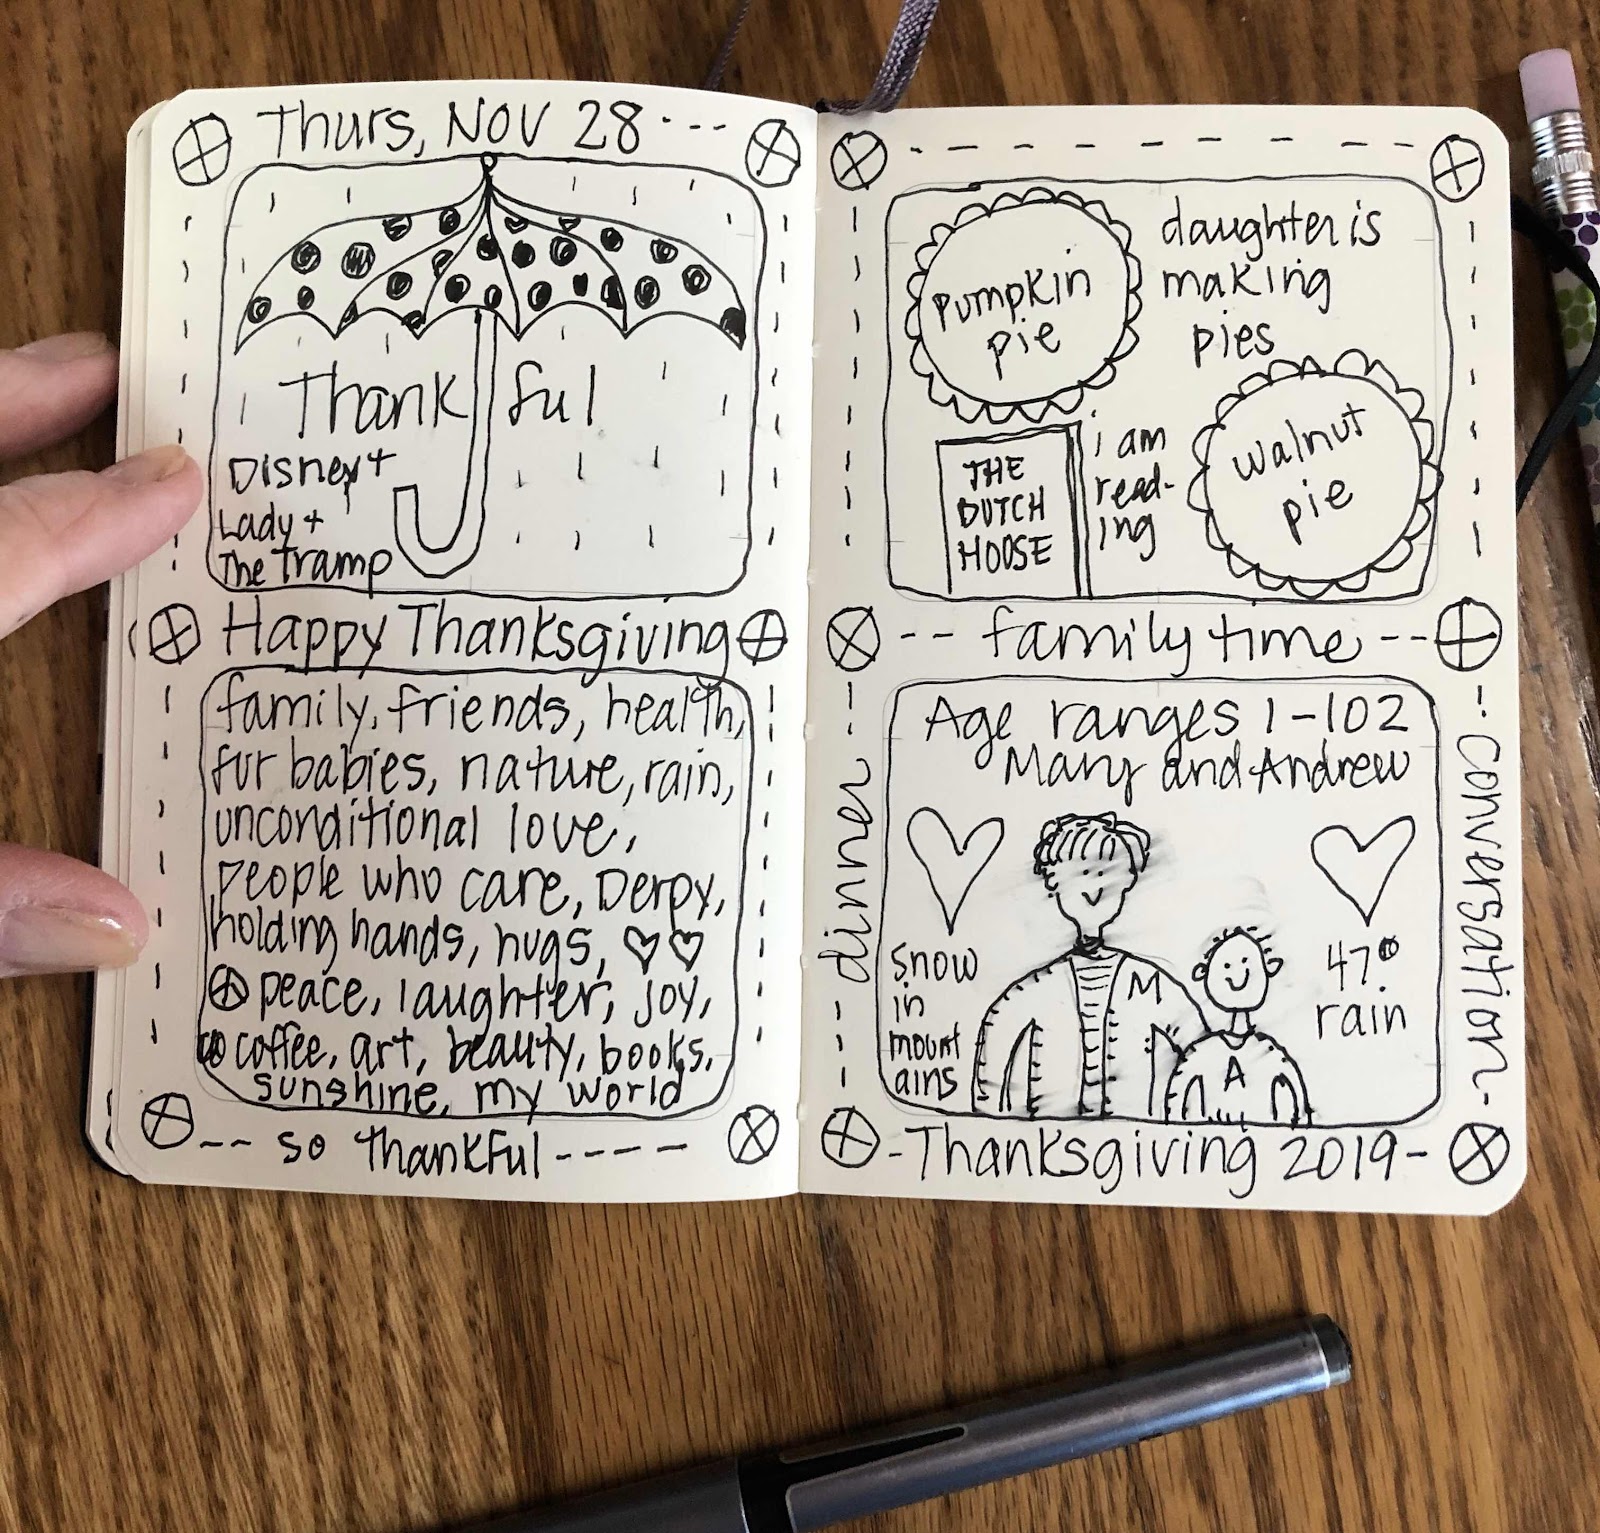 Thurs, Nov 28
Thankful
Disney+
Lady +
The Tramp
Happy Thanksgiving
family, friends, health,
fur babies, nature, rain,
unconditional love,
people who care, Derpy,
holding hands, hugs, ♡♡
peace, laughter, joy,
coffee, art, beauty, books,
sunshine, my world
so thankful
Pumpkin
pie
daughter is
making
pies
THE
DUTCH
HOUSE
i am
read-
ing
walnut
pie
family time
dinner
conversation
Age ranges 1-102
Mary and Andrew
snow
in
mount
ains
M
A
47°
rain
Thanksgiving 2019